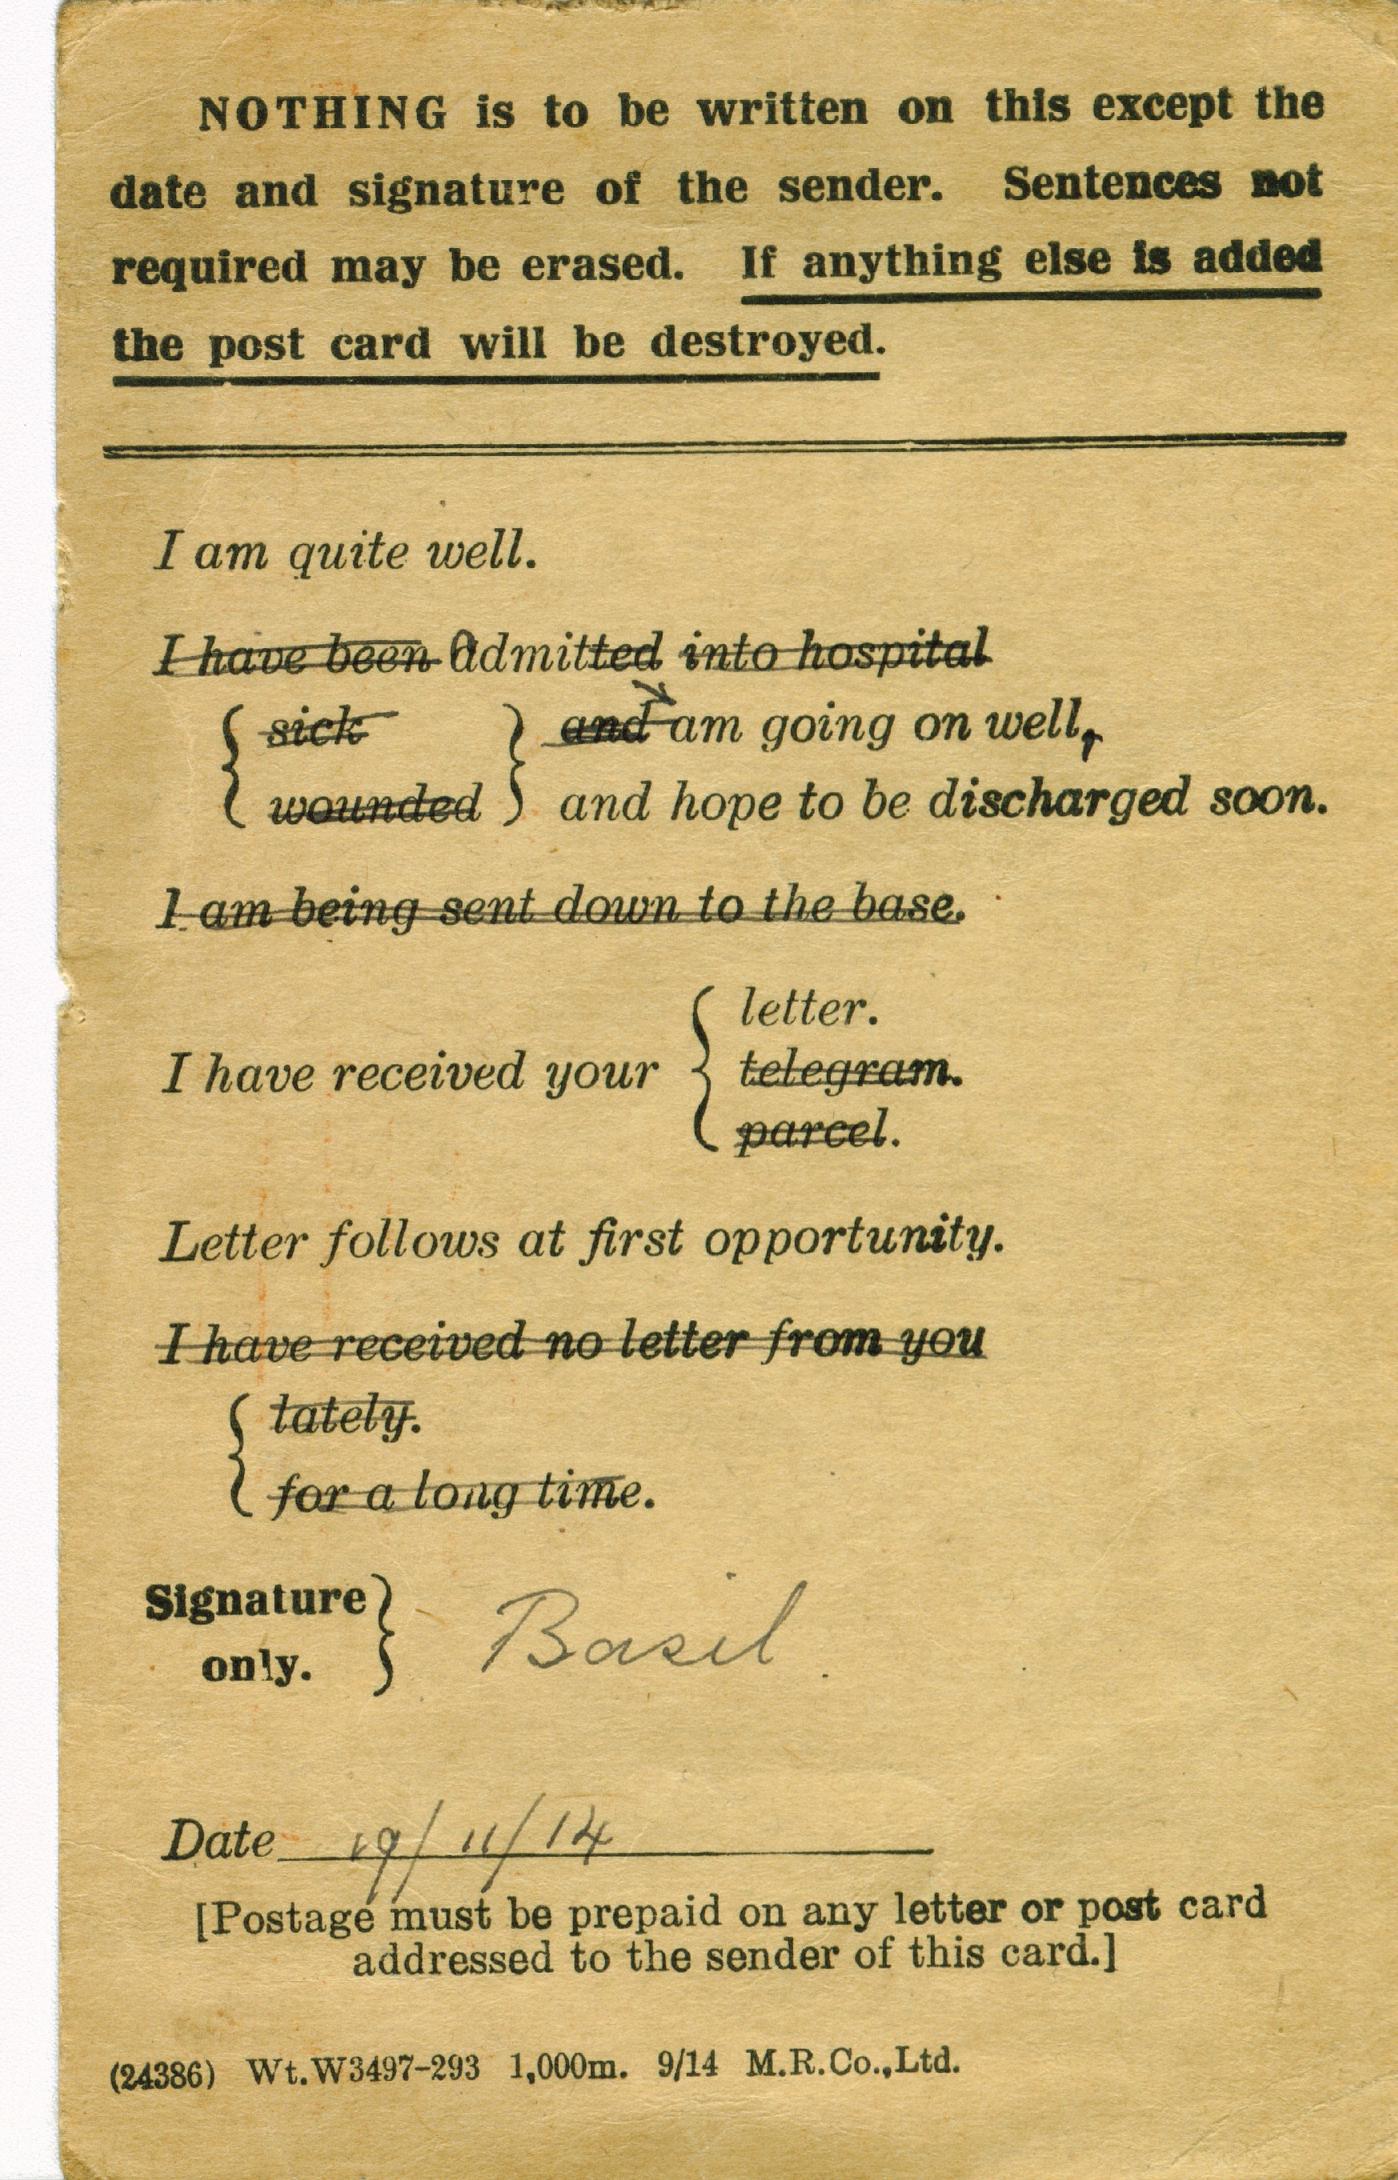 NOTHING is to be written on this except the
date and signature of the sender. Sentences not
required may be erased. If anything else is added
the post card will be destroyed.
I am quite well.
I have been admitted into hospital
{ sick } and am going on well,
{ wounded } and hope to be discharged soon.
I am being sent down to the base.
I have received your { letter.
telegram.
parcel.
Letter follows at first opportunity.
I have received no letter from you
{ lately.
for a long time.
Signature
only. } Basil
Date 19/11/14
[Postage must be prepaid on any letter or post card
addressed to the sender of this card.]
(24386) Wt.W3497-293 1,000m. 9/14 M.R.Co.,Ltd.